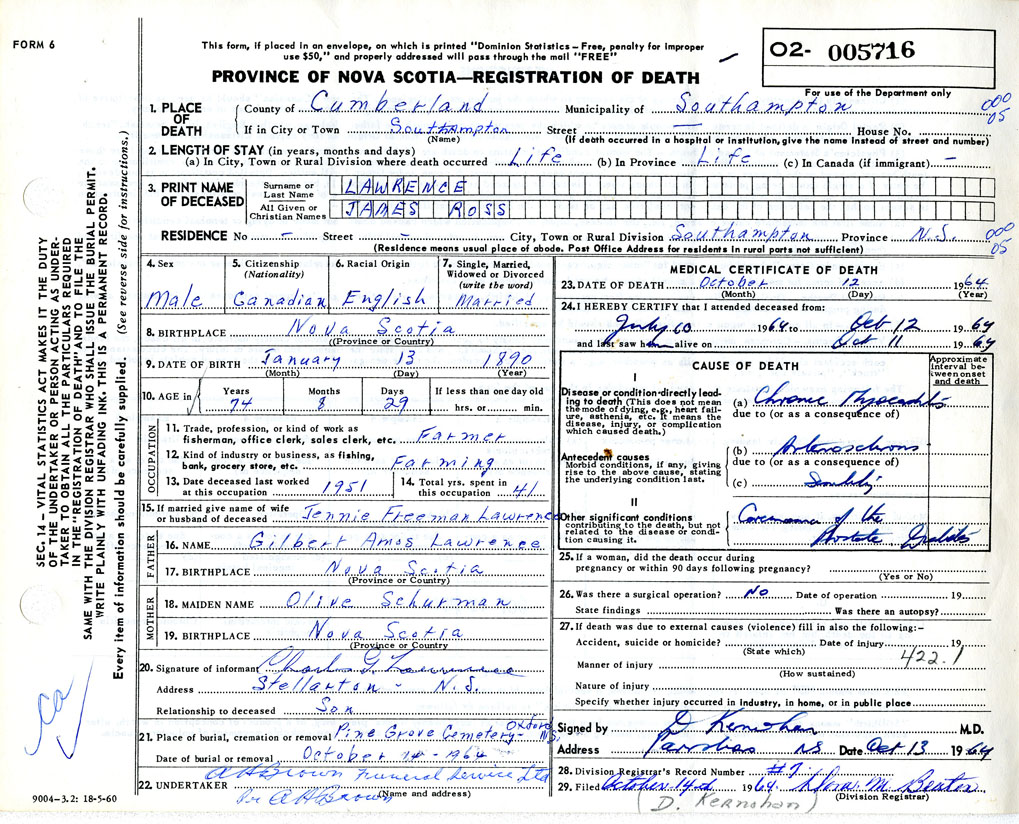 FORM 6
This form, if placed in an envelope, on which is printed "Dominion Statistics – Free, penalty for improper
use $50," and properly addressed will pass through the mail "FREE"
O2- 005716
PROVINCE OF NOVA SCOTIA—REGISTRATION OF DEATH
For use of the Department only
1. PLACE OF DEATH
County of Cumberland Municipality of Southampton 000 05
If in City or Town Southampton Street — House No.
(Name) (If death occurred in a hospital or institution, give the name instead of street and number)
2. LENGTH OF STAY (in years, months and days)
(a) In City, Town or Rural Division where death occurred Life (b) In Province Life (c) In Canada (if immigrant) –
3. PRINT NAME OF DECEASED
Surname or Last Name LAWRENCE
All Given or Christian Names JAMES ROSS
RESIDENCE No – Street – City, Town or Rural Division Southampton Province N.S. 000 05
(Residence means usual place of abode. Post Office Address for residents in rural parts not sufficient)
4. Sex Male
5. Citizenship (Nationality) Canadian
6. Racial Origin English
7. Single, Married, Widowed or Divorced (write the word) Married
8. BIRTHPLACE Nova Scotia
(Province or Country)
9. DATE OF BIRTH January 13 1890
(Month) (Day) (Year)
10. AGE in Years 74 Months 8 Days 29 If less than one day old hrs. or min.
OCCUPATION
11. Trade, profession, or kind of work as fisherman, office clerk, sales clerk, etc. Farmer
12. Kind of industry or business, as fishing, bank, grocery store, etc. Farming
13. Date deceased last worked at this occupation 1951
14. Total yrs. spent in this occupation 41
15. If married give name of wife or husband of deceased Jennie Freeman Lawrence
FATHER
16. NAME Gilbert Amos Lawrence
17. BIRTHPLACE Nova Scotia
(Province or Country)
MOTHER
18. MAIDEN NAME Olive Schurman
19. BIRTHPLACE Nova Scotia
(Province or Country
20. Signature of informant Charles G. Lawrence
Address Stellarton - N.S.
Relationship to deceased Son
21. Place of burial, cremation or removal Pine Grove Cemetery- Oxford N.S.
Date of burial or removal October 14 - 1964
22. UNDERTAKER A H Brown Funeral Service Ltd
Per A H Brown
(Name and address)
9004—3.2: 18-5-60
MEDICAL CERTIFICATE OF DEATH
23. DATE OF DEATH October 12 1964
(Month) (Day) (Year)
24. I HEREBY CERTIFY that I attended deceased from:
July 10 1964 to Oct 12 1964
and last saw him alive on Oct 11 1964
CAUSE OF DEATH
Approximate interval between onset and death
I
Disease or condition directly leading to death (This does not mean the mode of dying, e.g., heart failure, asthenia, etc. It means the disease, injury, or complication which caused death.)
(a) Chronic Myocarditis
due to (or as a consequence of)
Antecedent causes
Morbid conditions, if any, giving rise to the above cause, stating the underlying condition last.
(b) Arteriosclerosis
due to (or as a consequence of)
(c) Senility
II
Other significant conditions contributing to the death, but not related to the disease or condition causing it.
Carcinoma of the
Prostate
25. If a woman, did the death occur during
pregnancy or within 90 days following pregnancy?
(Yes or No)
26. Was there a surgical operation? No Date of operation 19
State findings Was there an autopsy?
27. If death was due to external causes (violence) fill in also the following:—
Accident, suicide or homicide? Date of injury 19
(State which) 422.1
Manner of injury
(How sustained)
Nature of injury
Specify whether injury occurred in industry, in home, or in public place
Signed by D Kernohan M.D.
Address Parrsboro NS Date Oct 13 1964
28. Division Registrar's Record Number #7
29. Filed October 14th 1964
(Division Registrar)
(D. Kernohan)
SEC. 14—VITAL STATISTICS ACT MAKES IT THE DUTY
OF THE UNDERTAKER OR PERSON ACTING AS UNDER-
TAKER TO OBTAIN ALL THE PARTICULARS REQUIRED
IN THE "REGISTRATION OF DEATH" AND TO FILE THE
SAME WITH THE DIVISION REGISTRAR WHO SHALL ISSUE THE BURIAL PERMIT.
WRITE PLAINLY WITH UNFADING INK. THIS IS A PERMANENT RECORD.
Every item of information should be carefully supplied. (See reverse side for instructions.)